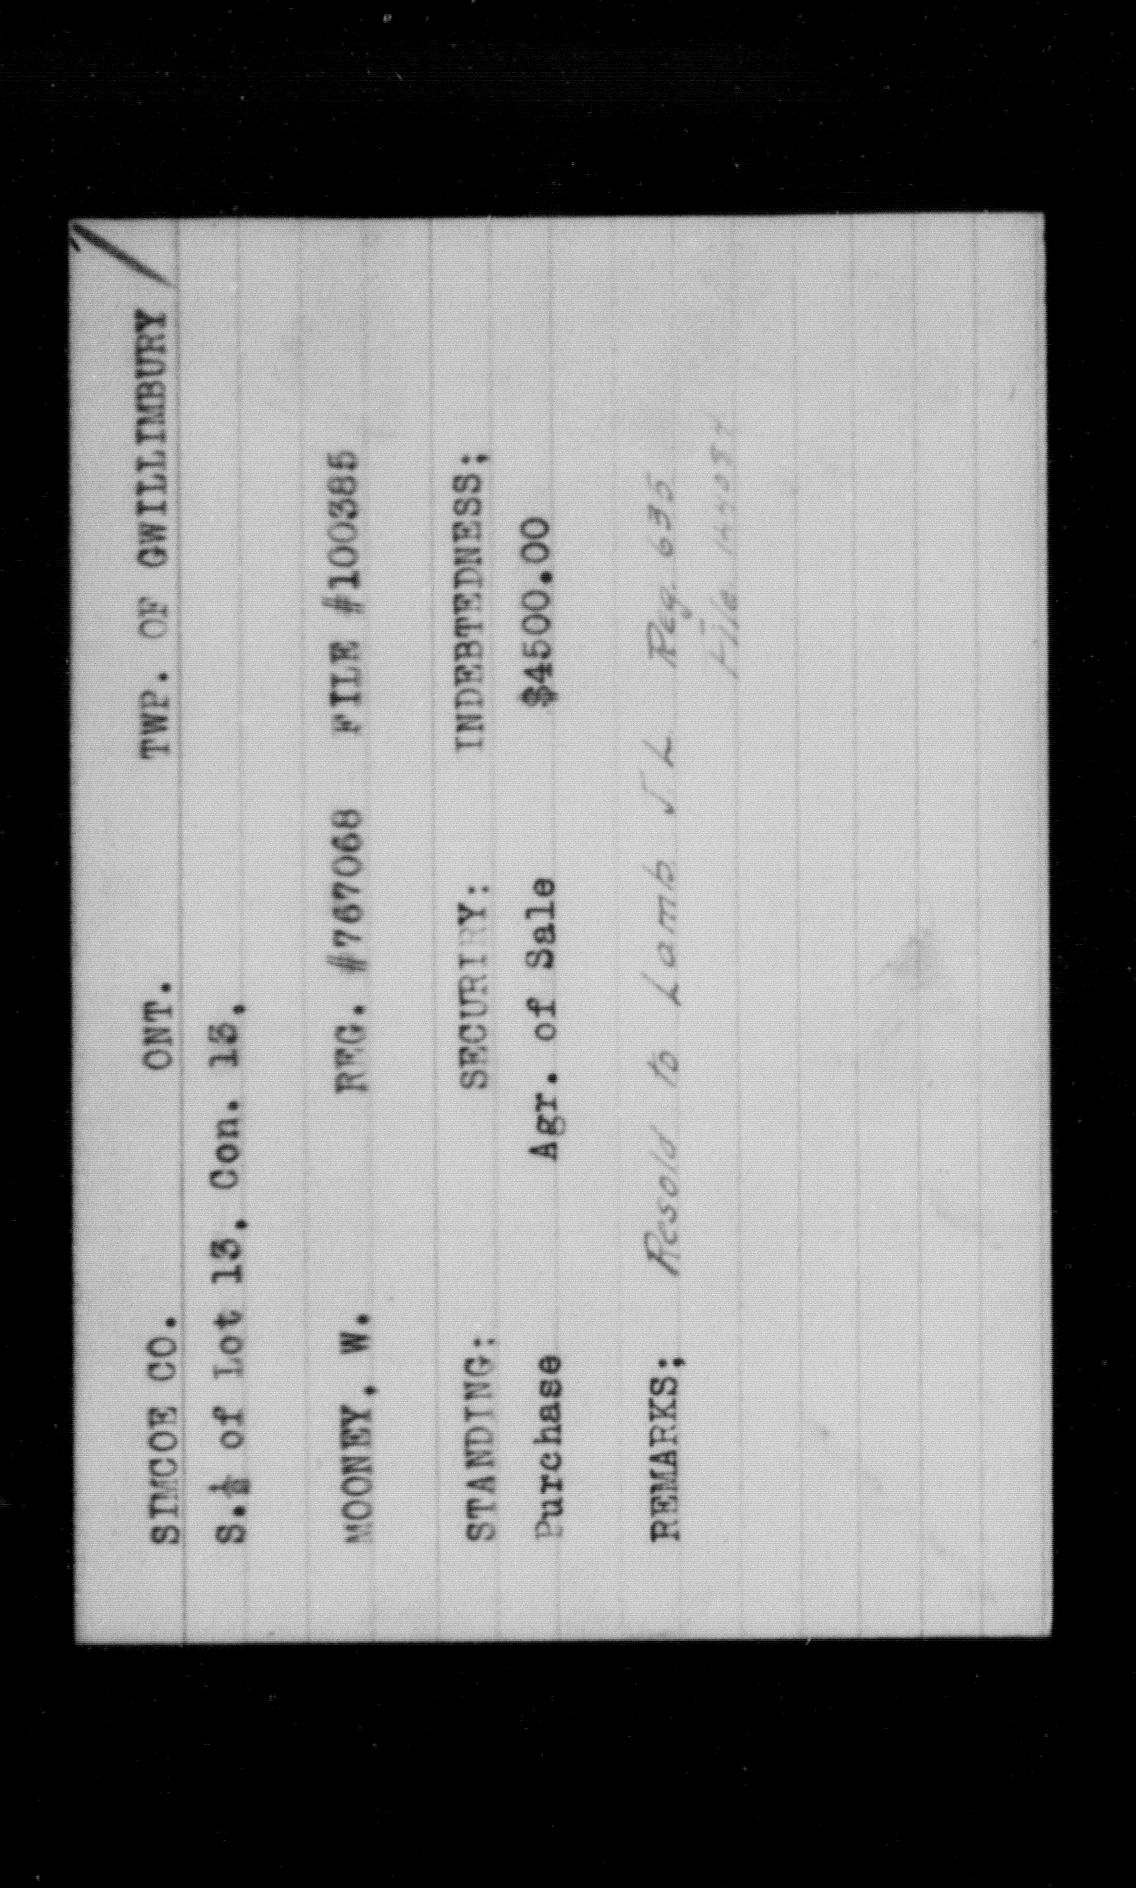 SIMCOE CO. ONT. TWP. OF GWILLIMBURY
S.½ of Lot 13, Con. 13,
MOONEY, W. REG. #767068 FILE #100385
STANDING; SECURIRY: INDEBTEDNESS;
Purchase Agr. of Sale $4500.00
REMARKS; Resold to Lamb J L Reg. 635
File